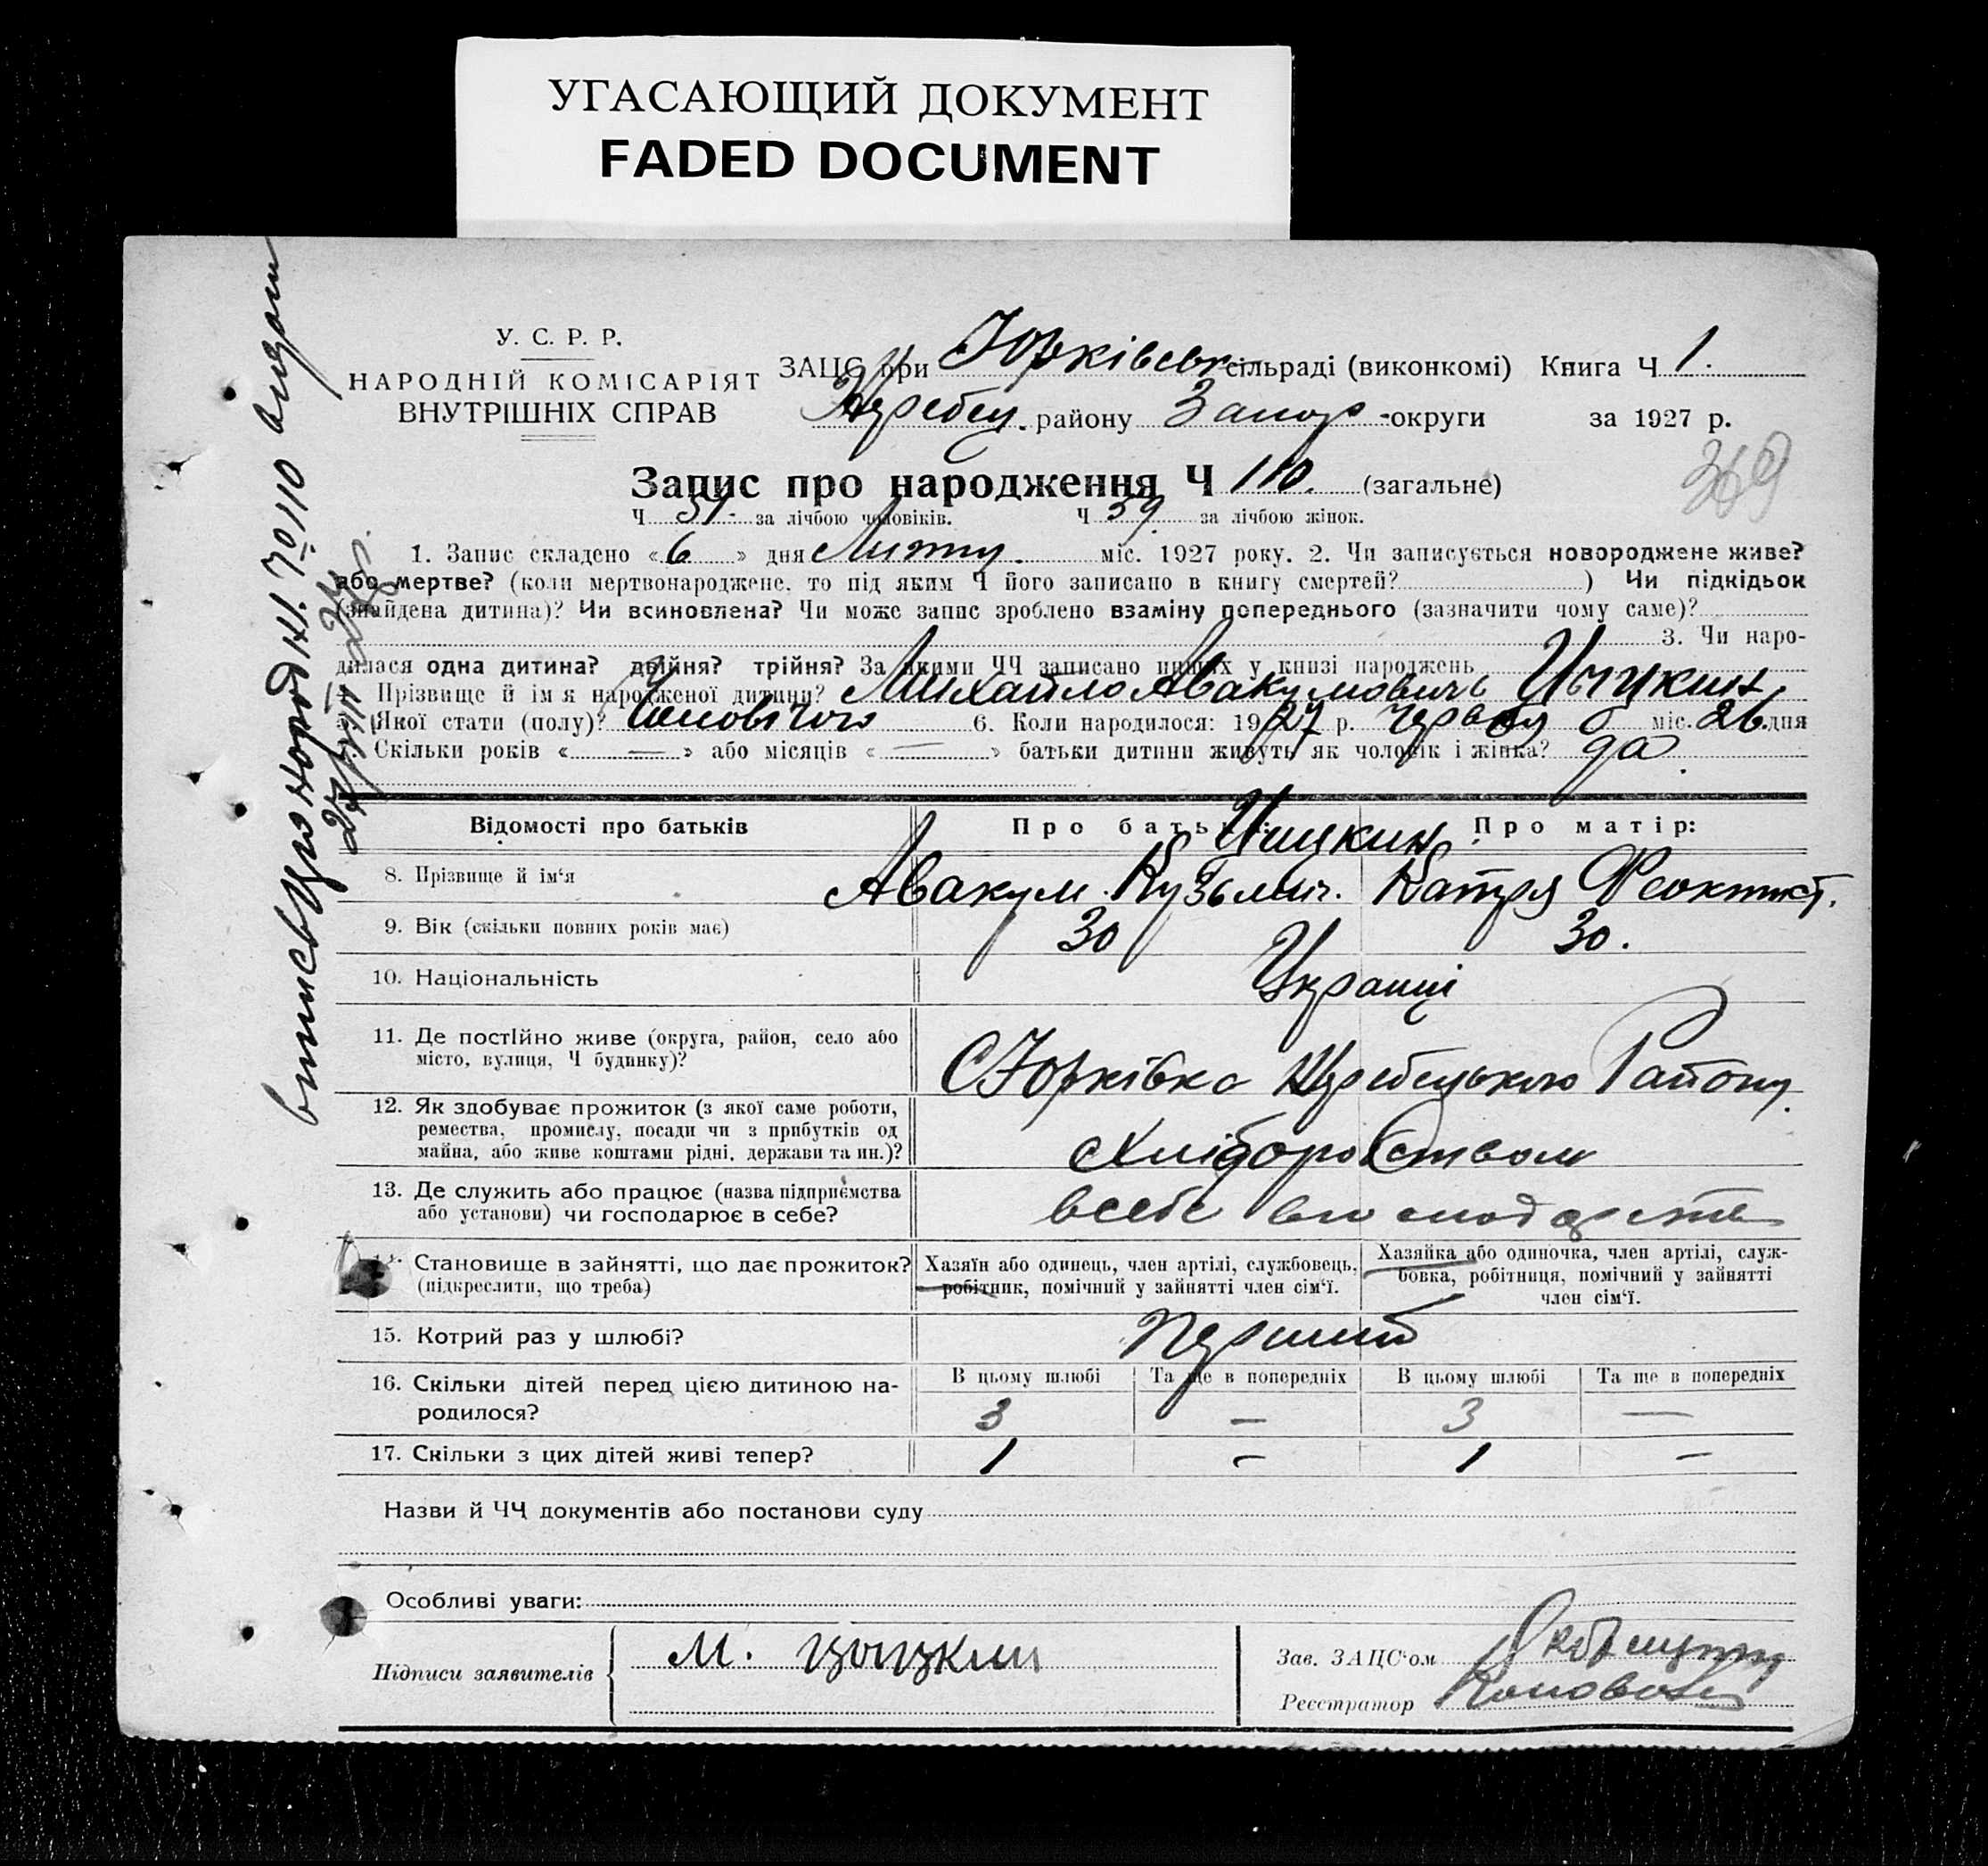 УГАСАЮЩИЙ ДОКУМЕНТ
FADED DOCUMENT
У. С. Р. Р.
НАРОДНІЙ КОМІСАРІЯТ
ВНУТРІШНІХ СПРАВ
ЗАЦС при Юрківськ сільраді (виконкомі) Книга Ч 1.
району Запор -округи за 1927 р.
369
Запис про народження Ч 110. (загальне)
Ч 51. за лічбою чоловіків. Ч 59. за лічбою жінок.
1. Запис складено «6» дня Липню. міс. 1927 року. 2. Чи записується новороджене живе?
або мертве? (коли мертвонароджене, то під яким Ч його записано в книгу смертей? ) Чи підкідьок
(знайдена дитина)? Чи всиновлена? Чи може запис зроблено взаміну попереднього (зазначити чому саме)?
3. Чи наро-
дилася одна дитина? двійня? трійня? За якими ЧЧ записано инших у книзі народжень
4. Прізвище й ім'я народженої дитини? Михайло Авакумовичь
5. Якої стати (полу)? 6. Коли народилося: 1927 р. червня міс. 26 дня
7. Скільки років « — » або місяців « — » батьки дитини живуть як чоловік і жінка? да
Відомості про батьків
Про батька: Про матір:
8. Прізвище й ім'я Авакум Кузьмич. Катря Феоктист.
9. Вік (скільки повних років має) 30 30.
10. Національність Українці
11. Де постійно живе (округа, район, село або
місто, вулиця, Ч будинку)?
С Юрківка Району
12. Як здобуває прожиток (з якої саме роботи,
ремества, промислу, посади чи з прибутків од
майна, або живе коштами рідні, держави та ин.)?
Хліборобством
13. Де служить або працює (назва підприємства
або установи) чи господарює в себе?
всебе
14. Становище в зайнятті, що дає прожиток?
(підкреслити, що треба)
Хазяїн або одинець, член артілі, службовець,
робітник, помічний у зайнятті член сім'ї.
Хазяйка або одиночка, член артілі, служ-
бовка, робітниця, помічний у зайнятті
член сім'ї.
15. Котрий раз у шлюбі? Перший
16. Скільки дітей перед цією дитиною на-
родилося?
В цьому шлюбі Та ще в попередніх В цьому шлюбі Та ще в попередніх
3 — 3 —
17. Скільки з цих дітей живі тепер? 1 – 1 –
Назви й ЧЧ документів або постанови суду
Особливі уваги:
Підписи заявителів
М. Цыцкин
Зав. ЗАЦС'ом
Реєстратор